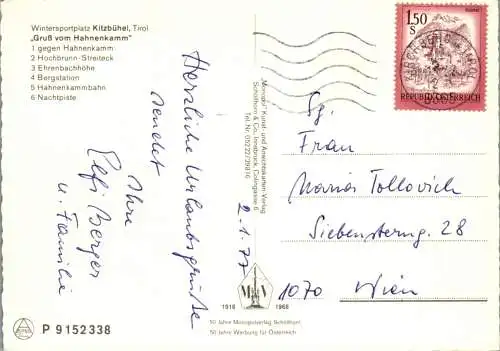 Wintersportplatz Kitzbühel, Tirol
„Gruß vom Hahnenkamm"
1 gegen Hahnenkamm
2 Hochbrunn-Streiteck
3 Ehrenbachhöhe
4 Bergstation
5 Hahnenkammbahn
6 Nachtpiste
Herzliche Urlaubsgrüße
sendet
Ihre
Elfi Berger
u. Familie
2.1.77
„Monopol" Kunst- und Ansichtskarten-Verlag
Schöllhorn & Co., Innsbruck, Colingasse 6
Tel. Nr. 05222/29816
1,50
S
REPUBLIK ÖSTERREICH
Sg.
Frau
Maria Tollovich
Siebensterng. 28
1070 Wien
1918 MV 1968
50 Jahre Monopolverlag Schöllhorn
50 Jahre Werbung für Österreich
P 9152338